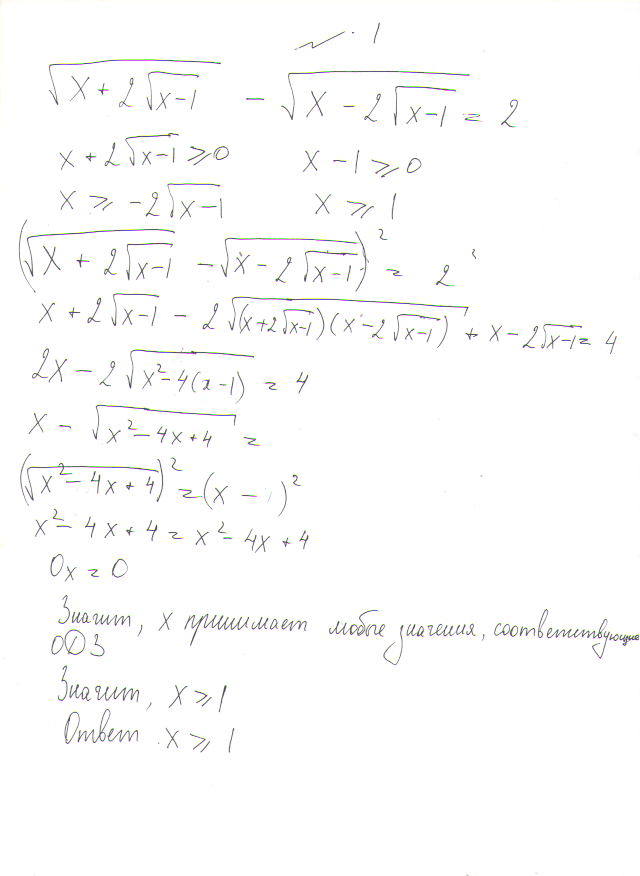 № 1
√(x + 2√(x-1)) - √(x - 2√(x-1)) = 2
x + 2√(x-1) ⩾ 0 x - 1 ⩾ 0
x ⩾ -2√(x-1) x ⩾ 1
(√(x + 2√(x-1)) - √(x - 2√(x-1)))² = 2²
x + 2√(x-1) - 2√((x+2√(x-1))(x-2√(x-1))) + x - 2√(x-1) = 4
2x - 2√(x² - 4(x-1)) = 4
x - √(x² - 4x + 4) =
(√(x² - 4x + 4))² = (x - )²
x² - 4x + 4 = x² - 4x + 4
0x = 0
Значит, x принимает любые значения, соответствующие
ОДЗ
Значит, x ⩾ 1
Ответ x ⩾ 1